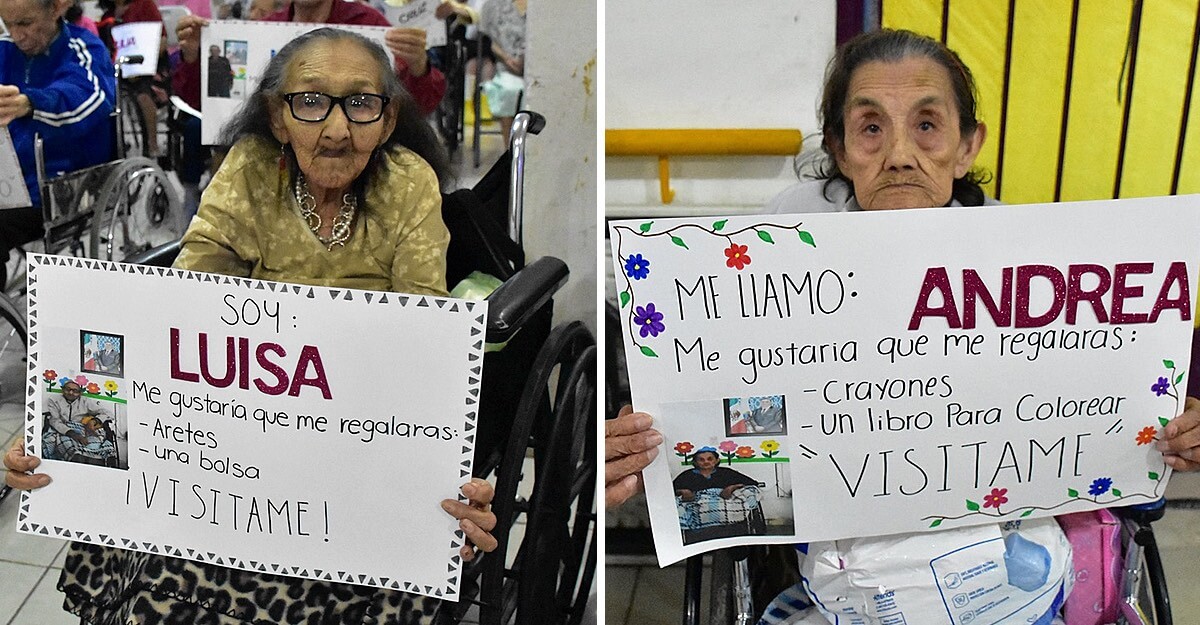 CRUZ
SOY:
LUISA
Me gustaría que me regalaras:
- Aretes
- una bolsa
¡VISITAME!
ME LLAMO:
ANDREA
Me gustaria que me regalaras:
- Crayones
- un libro Para Colorear
"VISITAME"